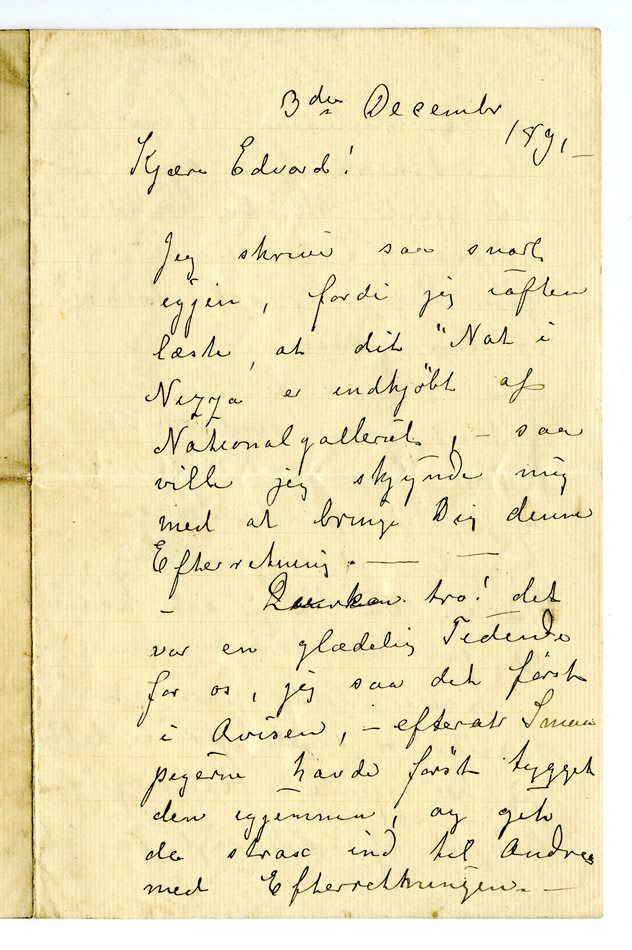 3die December
1891 –
Kjære Edvard!
Jeg skriver saa snart
igjen, fordi jeg iaften
læste, at dit "Nat i
Nizza er indkjöbt af
Nationalgalleriet, – saa
ville jeg skynde mig
med at bringe Dig denne
Efterretning. — —
– tro! det
var en glædelig Tidende
for os, jeg saa det först
i Avisen, – efterat Smaa
pigerne havde först tygget
den igjennem, og gik
da strax ind til Andreas
med Efterretningen. –